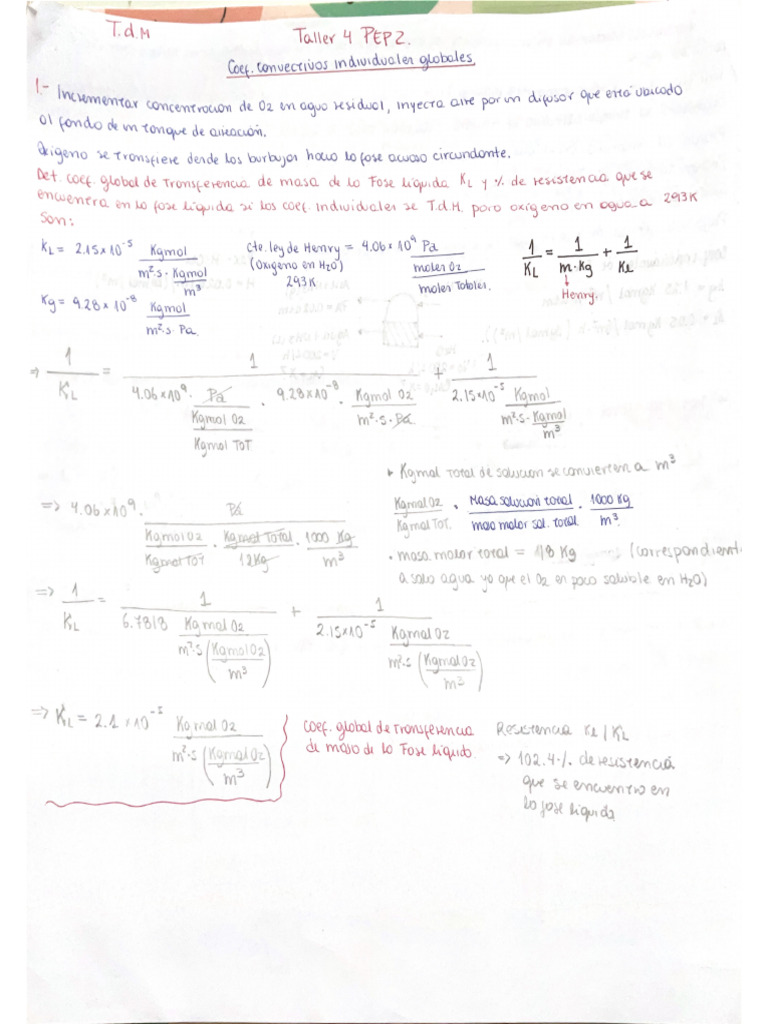 T.d.M
Taller 4 PEP2.
Coef. convectivos individuales globales.
1.- Incrementar concentracion de O2 en agua residual, inyecta aire por un difusor que está ubicado
al fondo de un tanque de aireación.
Oxigeno se transfiere desde las burbujas hacia la fase acuosa circundante.
Det. coef. global de Transferencia de masa de la Fase líquida KL y % de resistencia que se
encuentra en la fase líquida si los coef. individuales se T.d.M. para oxígeno en agua a 293K
Son:
kL = 2.15x10^-5 Kgmol / m²·s·Kgmol/m³
Cte. ley de Henry = 4.06 x 10^9 Pa / moles O2 / moles Totales.
(Oxígeno en H2O)
293K
1/KL = 1/m·Kg + 1/Kl
Henry.
Kg = 9.28 x 10^-8 Kgmol / m²·s·Pa
=> 1/KL = 1 / 4.06x10^9 · Pa / Kgmol O2 / Kgmol TOT · 9.28x10^-8 · Kgmol O2 / m²·s·Pa + 1 / 2.15x10^-5 Kgmol / m²·s·Kgmol/m³
Kgmol Total de solución se convierten a m³
=> 4.06x10^9 · Pa / Kgmol O2 / Kgmol TOT · Kgmol Total / 12Kg · 1000 Kg / m³
Kgmol O2 / Kgmol TOT. · Masa solucion total / masa molar sol. total · 1000 Kg / m³
· masa molar total = 18 Kg (correspondient
a solo agua ya que el O2 en poco soluble en H2O)
=> 1/KL = 1 / 6.7818 Kgmol O2 / m²·s (Kgmol O2 / m³) + 1 / 2.15x10^-5 Kgmol O2 / m²·s (Kgmol O2 / m³)
=> KL = 2.1 x 10^-5 Kgmol O2 / m²·s (Kgmol O2 / m³)
Coef. global de Transferencia
de masa de la Fase líquida.
Resistencia Kl / KL
=> 102.4 % de resistencia
que se encuentra en
la fase líquida